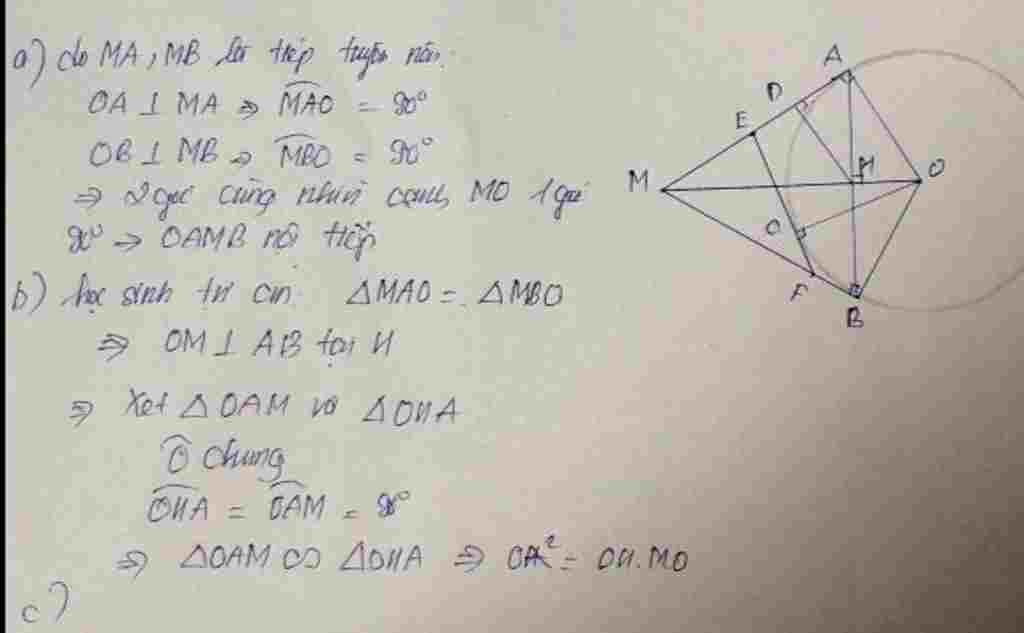 a) do MA, MB là tiếp tuyến nên
OA ⊥ MA ⇒ MAO = 90°
OB ⊥ MB ⇒ MBO = 90°
⇒ 2 góc cùng nhìn cạnh MO 1 góc
90° ⇒ OAMB nội tiếp
b) học sinh tự cm ΔMAO = ΔMBO
⇒ OM ⊥ AB tại H
⇒ Xét ΔOAM và ΔOHA
Ô chung
OHA = OAM = 90°
⇒ ΔOAM ∽ ΔOHA ⇒ OA² = OH.MO
c)
A
D
E
M
H
O
C
F
B